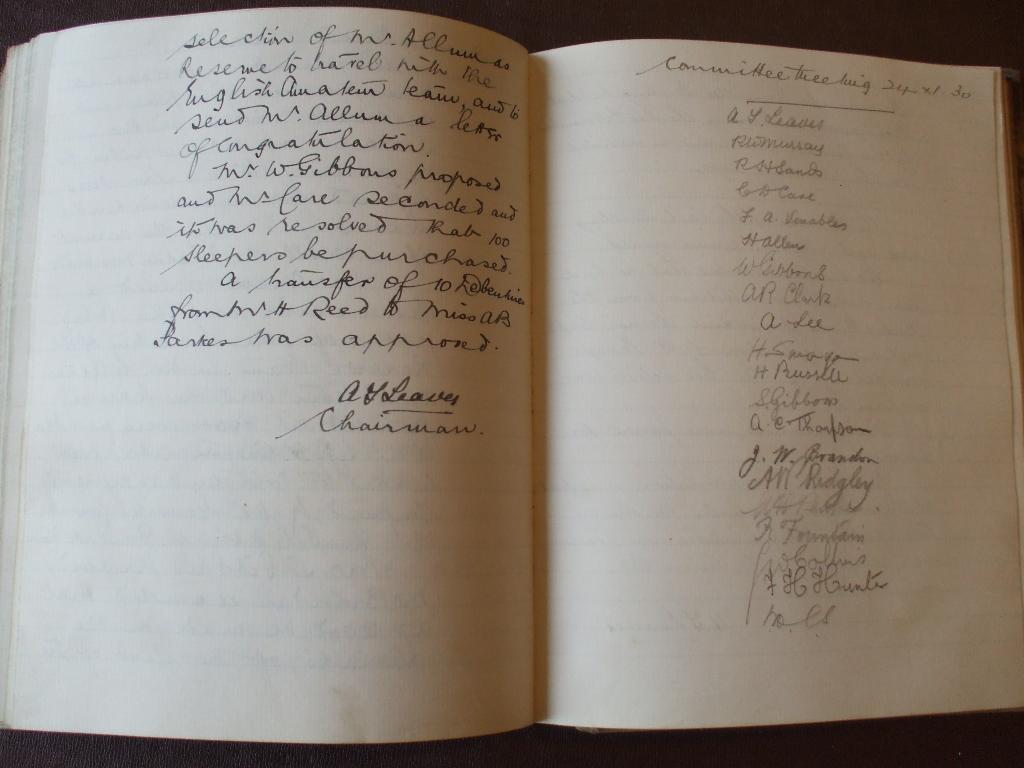 selection of Mr. Allum as
Reserve to travel with the
English Amateur team, and to
send Mr. Allum a letter
of congratulation.
Mr. W. Gibbons proposed
and Mr Care seconded and
it was resolved that 100
sleepers be purchased.
A transfer of 10 Debentures
from Mr H Reed to Miss AB
Parkes was approved.
A F Leaver
Chairman.
Committee Meeting 24 XI 30
A F Leaver
R W Murray
R H Sands
C D Care
F. A. Venables
H Allen
W Gibbons
A R Clark
A Lee
H
H Russell
S. Gibbons
A. C. Thompson
J. W. Brandon
A W Ridgley
R Fountain
F H Hunter